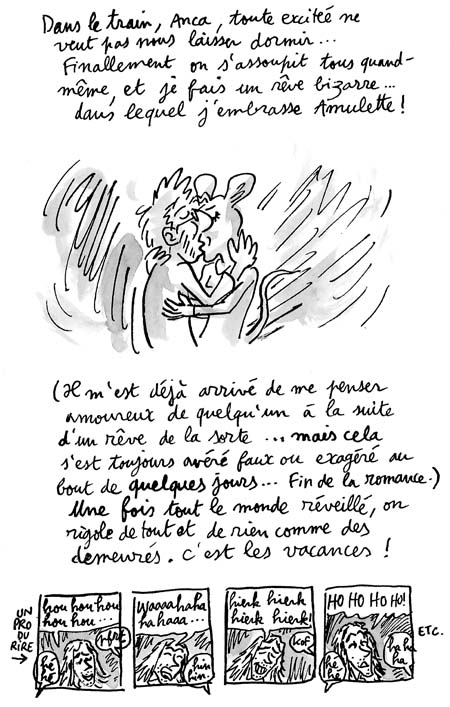 Dans le train, Anca, toute excitée ne
veut pas nous laisser dormir...
Finallement on s'assoupit tous quand-
même, et je fais un rêve bizarre...
dans lequel j'embrasse Amulette !
(Il m'est déjà arrivé de me penser
amoureux de quelqu'un à la suite
d'un rêve de la sorte ... mais cela
s'est toujours avéré faux ou exagéré au
bout de quelques jours... Fin de la romance.)
Une fois tout le monde réveillé, on
rigole de tout et de rien comme des
demeurés. C'est les vacances !
UN
PRO
DU
RIRE
hou hou hou
hou hou...
hé
hé
Waaaahaha
hahaaa...
hin
hin.
hierk hierk
hierk hierk!
kof
HO HO HO HO!
hé
hé
ha ha
ha
ETC.